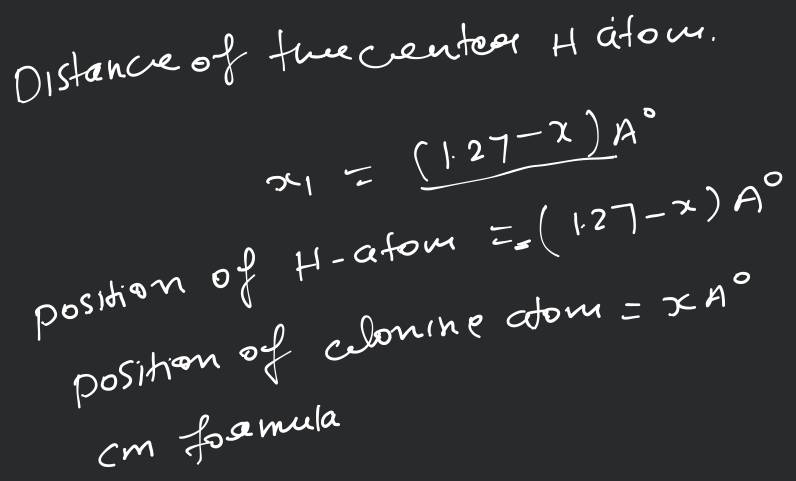 Distance of the center H atom.
x₁ = (1.27-x) A°
position of H-atom = (1.27-x) A°
position of clonine atom = x A°
cm formula